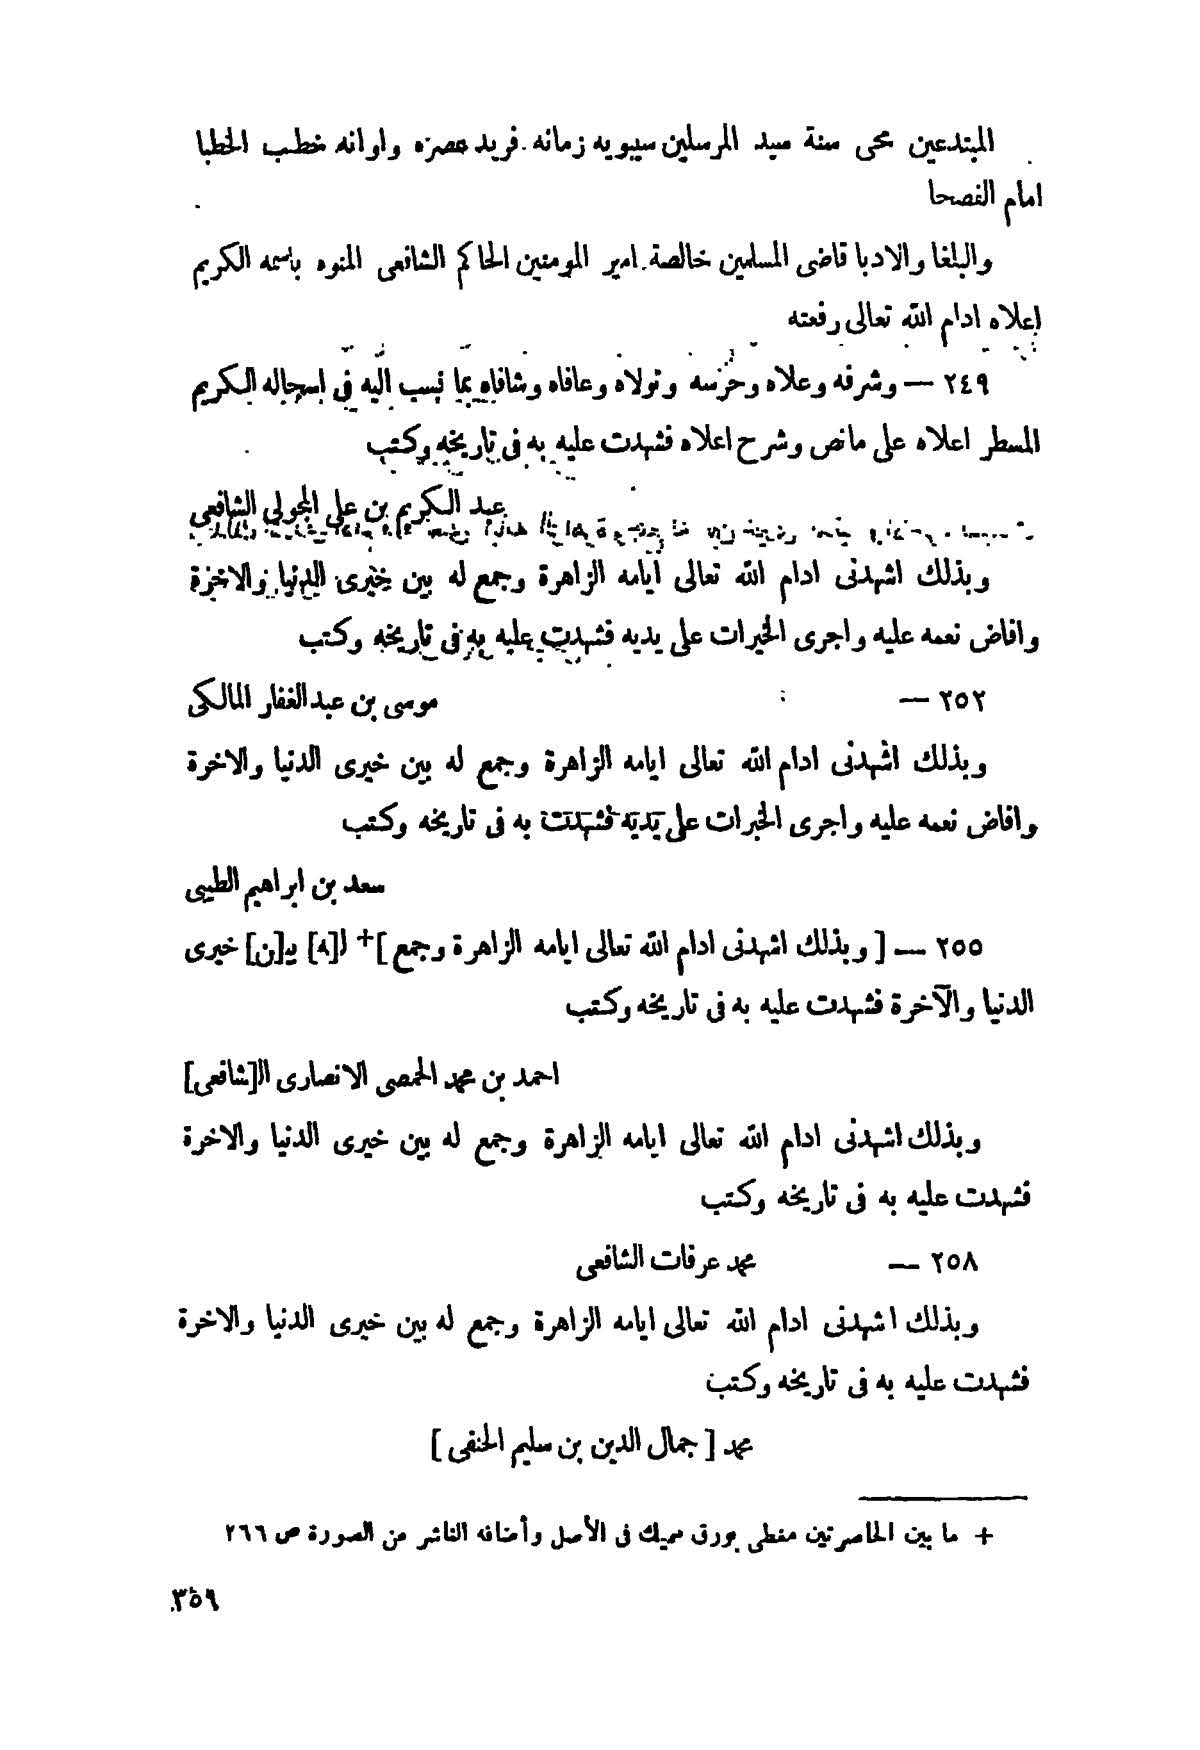 المبتدعين محى سنة سيد المرسلين سيبويه زمانه فريد عصره واوانه خطب الخطبا
امام الفصحا
والبلغا والادبا قاضى المسلمين خالصة امير المومنين الحاكم الشافعى المنوه باسمه الكريم
اعلاه ادام الله تعالى رفعته
٢٤٩ — وشرفه وعلاه وحرسه وتولاه وعافاه وشافاه بما نسب اليه فى اسجاله الكريم
المسطر اعلاه على مانص وشرح اعلاه فشهدت عليه به فى تاريخه وكتب
عبد الكريم بن على المجولى الشافعى
وبذلك اشهدنى ادام الله تعالى ايامه الزاهرة وجمع له بين خيرى الدنيا والاخرة
وافاض نعمه عليه واجرى الخيرات على يديه فشهدت عليه به فى تاريخه وكتب
٢٥٢ — موسى بن عبدالغفار المالكى
وبذلك اشهدنى ادام الله تعالى ايامه الزاهرة وجمع له بين خيرى الدنيا والاخرة
وافاض نعمه عليه واجرى الخبرات على يديه فشهدت به فى تاريخه وكتب
سعد بن ابراهيم الطيبى
٢٥٥ — [ وبذلك اشهدنى ادام الله تعالى ايامه الزاهرة وجمع ]+ ل[ه] بي[ن] خيرى
الدنيا والآخرة فشهدت عليه به فى تاريخه وكتب
احمد بن محمد الحمصى الانصارى ال[شافعى]
وبذلك اشهدنى ادام الله تعالى ايامه الزاهرة وجمع له بين خيرى الدنيا والاخرة
فشهدت عليه به فى تاريخه وكتب
٢٥٨ — محمد عرفات الشافعى
وبذلك اشهدنى ادام الله تعالى ايامه الزاهرة وجمع له بين خيرى الدنيا والاخرة
فشهدت عليه به فى تاريخه وكتب
محمد [ جمال الدين بن سليم الحنفى ]
+ ما بين الحاصرتين مغطى بورق سميك فى الأصل وأضافه الناشر من الصورة ص ٢٦٦
٣٥٩